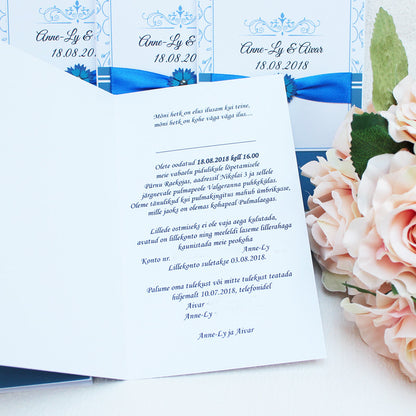 Anne-Ly &
18.08.20
Anne-Ly &
18.08.20
Anne-Ly & Aivar
18.08.2018
Mõni hetk on elus ilusam kui teine,
mõni hetk on kohe väga väga ilus...
Olete oodatud 18.08.2018 kell 16.00
meie vabaelu pidulikule lõpetamisele
Pärnu Raekojas, aadressil Nikolai 3 ja sellele
järgnevale pulmapeole Valgeranna puhkekülas.
Oleme tänulikud kui pulmakingitus mahub ümbrikusse,
mille jaoks on olemas kohapeal Pulmalaegas.
Lillede ostmiseks ei ole vaja aega kulutada,
avatud on lillekonto ning meeleldi laseme lillerahaga
kaunistada meie peokoha
Anne-Ly
Konto nr.
Lillekonto suletakse 03.08.2018.
Palume oma tulekust või mitte tulekust teatada
hiljemalt 10.07.2018, telefonidel
Aivar
Anne-Ly
Anne-Ly ja Aivar